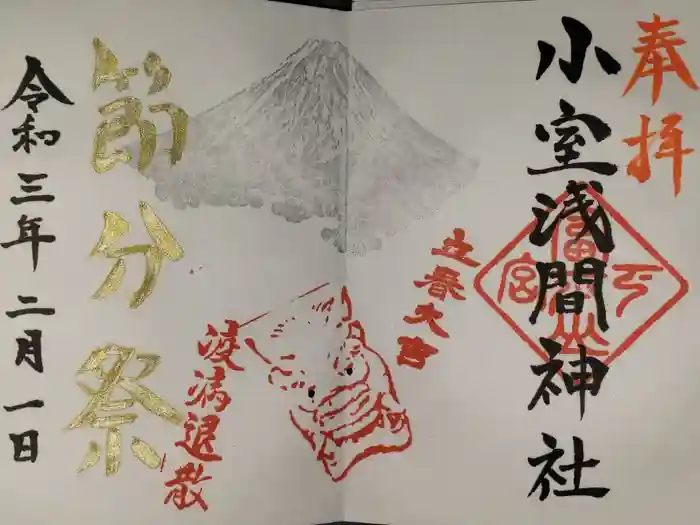 奉拝
小室浅間神社
立春大吉
疫病退散
節分祭
令和三年二月一日